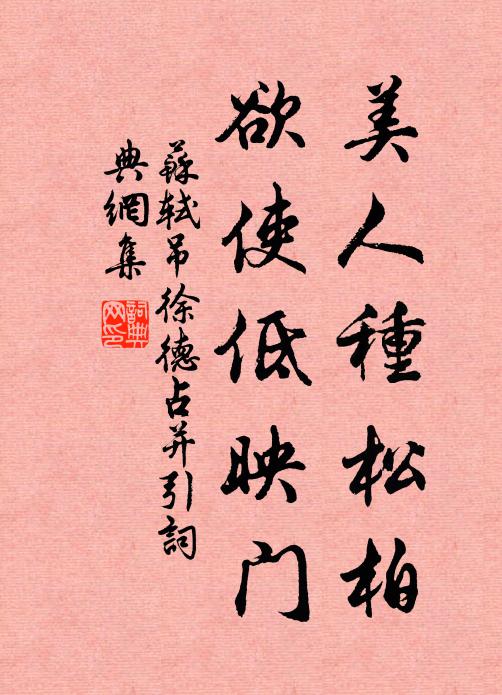 美人種松柏
欲使低映門
蘇軾吊徐德占并引詞
典網集
詞典
网印